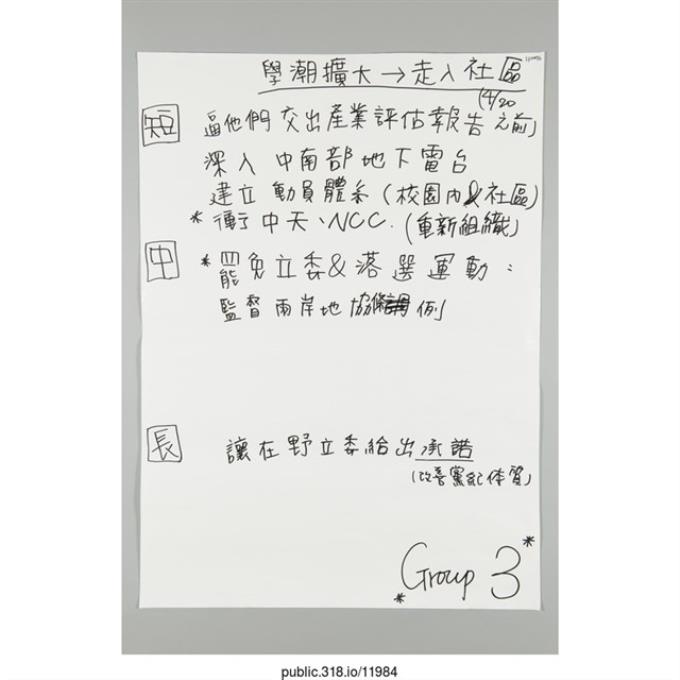 學潮擴大→走入社區
(4/20
短 逼他們交出產業評估報告 之前)
深入中南部地下電台
建立動員體系(校園內&社區)
*衝中天、NCC.(重新組織)
中 *罷免立委&落選運動:
監督兩岸地協條例
長 讓在野立委給出承諾
(改善黨紀体質)
*Group 3*
public.318.io/11984